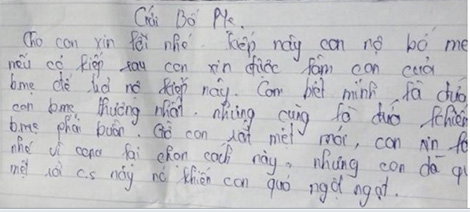 Gửi Bố Mẹ.
Cho con xin lỗi nhé. Kiếp này con nợ bố mẹ
nếu có kiếp sau con xin được làm con của
bmẹ để trả nợ kiếp này. Con biết mình là đứa
con bmẹ thương nhất. nhưng cũng là đứa khiến
bmẹ phải buồn. Giờ con rất mệt mỏi, con xin lỗ
nhé vì con lại chọn cách này, nhưng con đã qu
mệt với c.s này nó khiến con quá ngột ngạt.